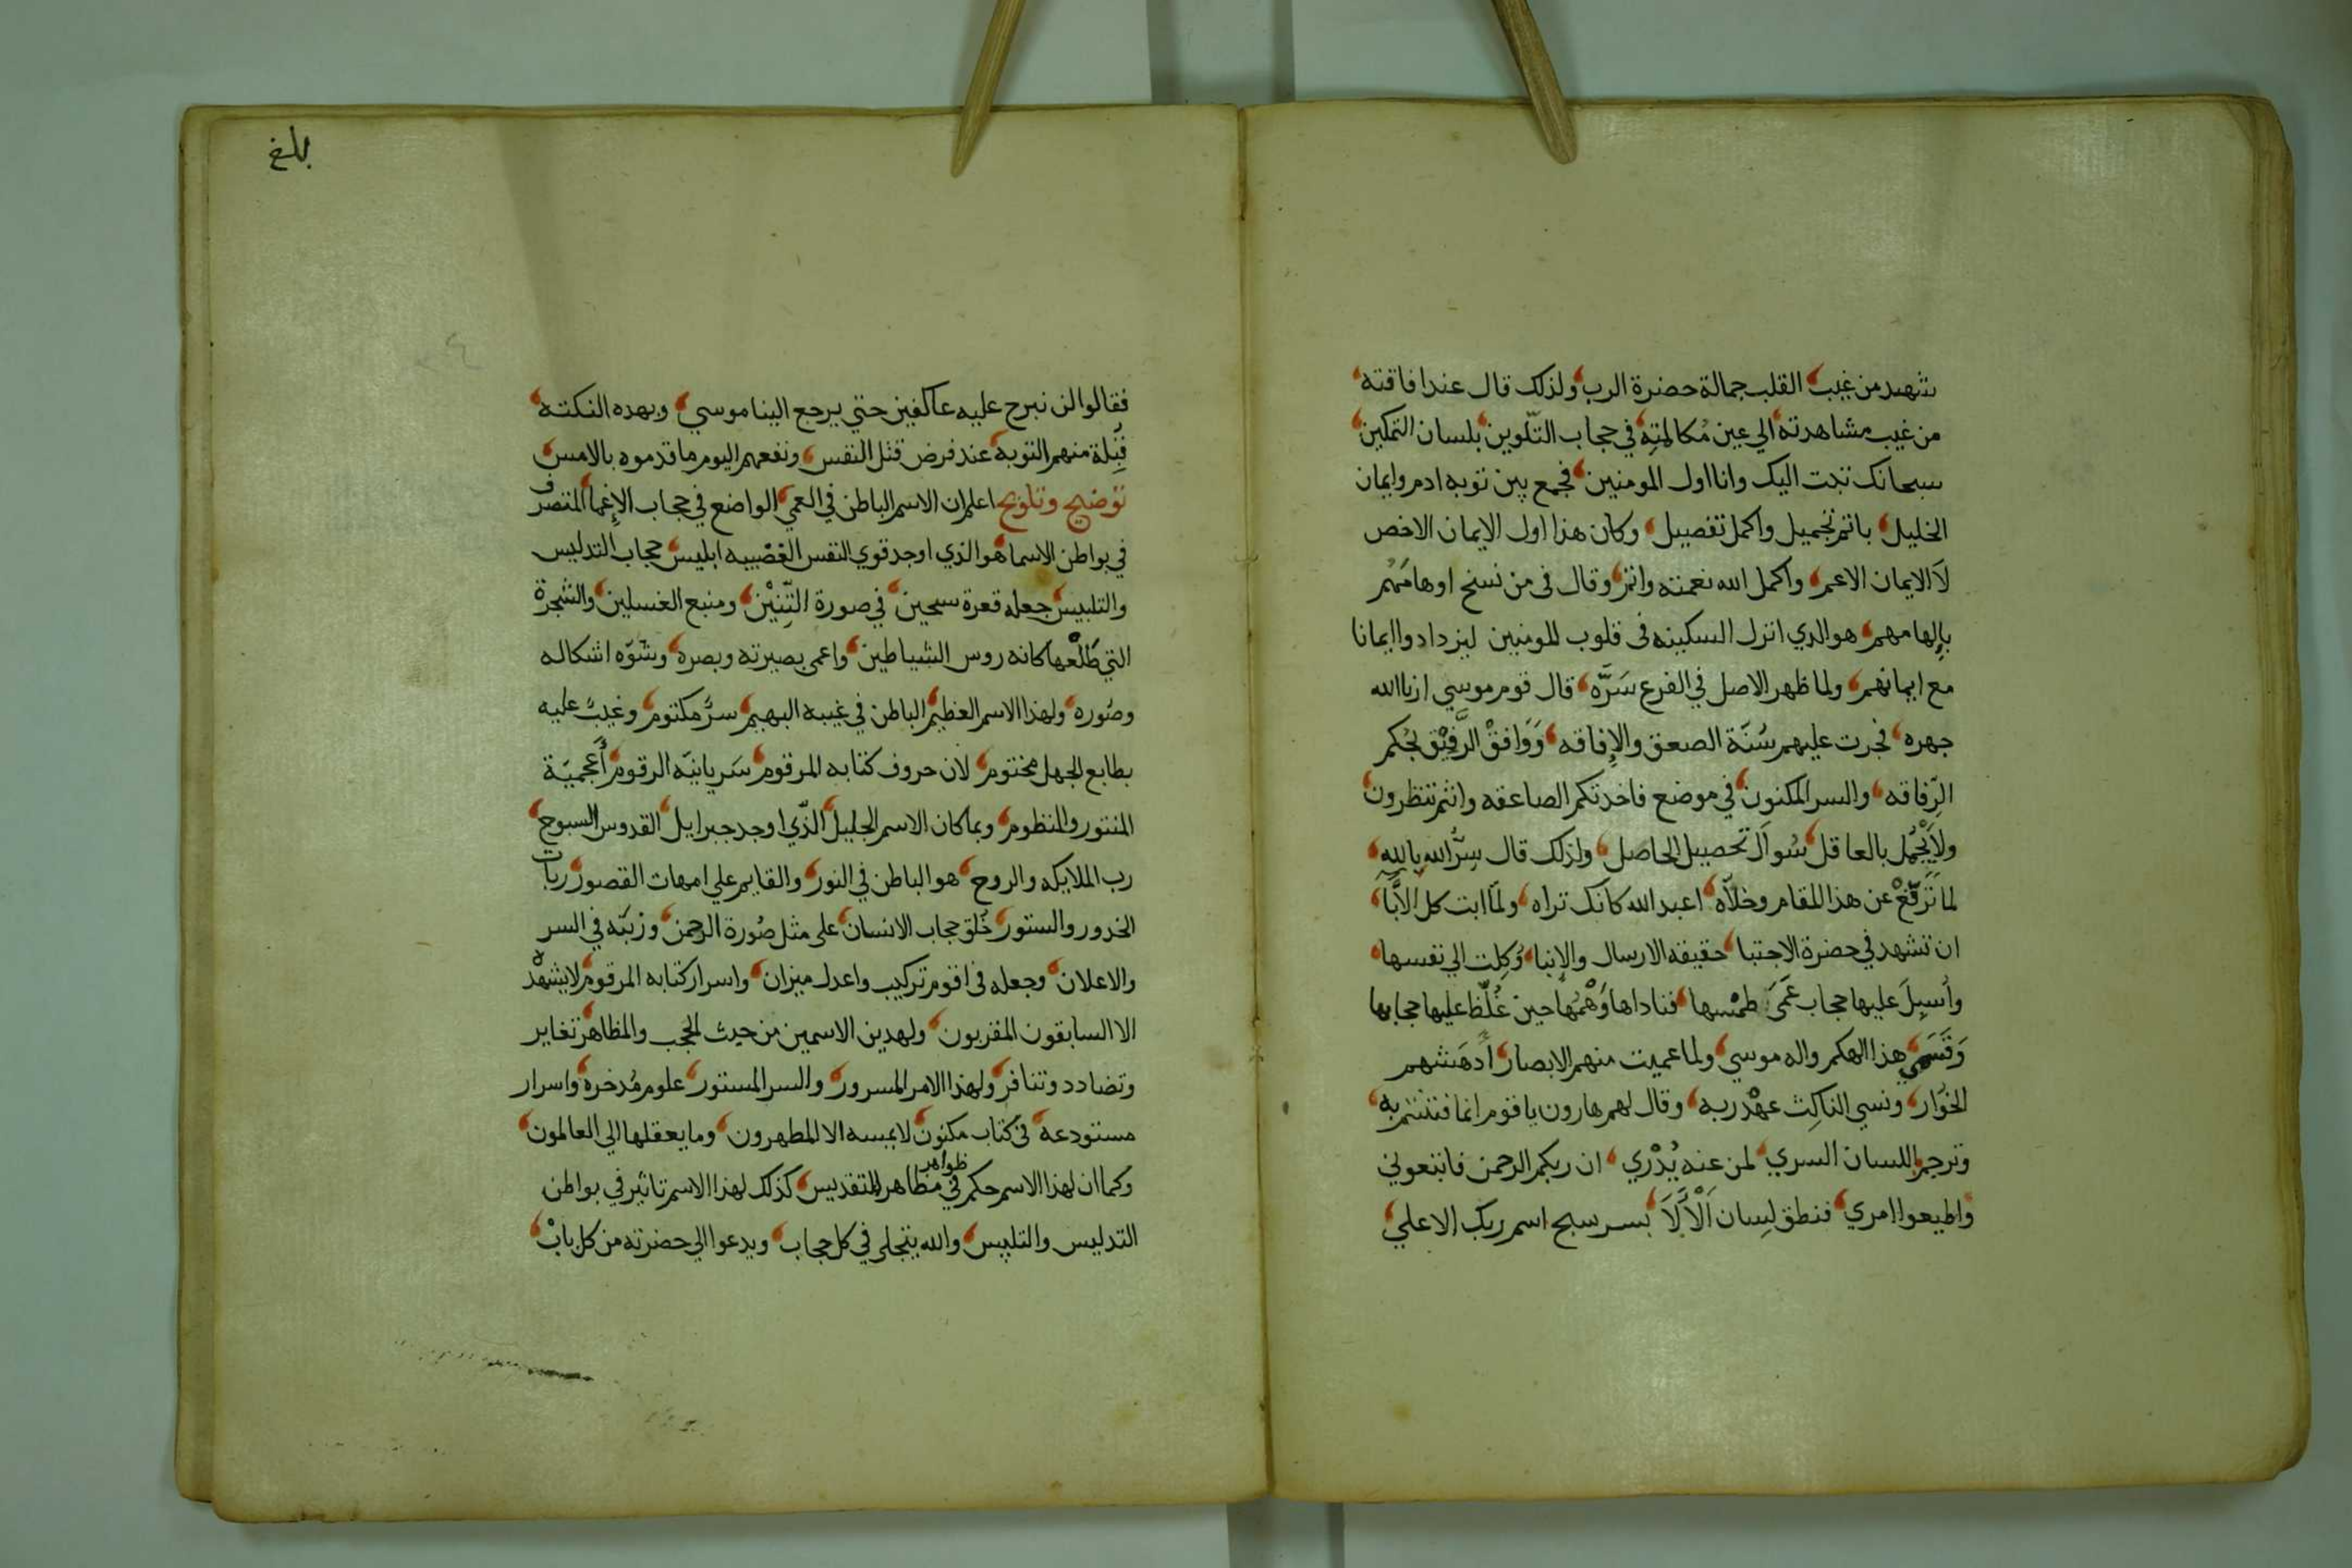 شهد من غيب القلب جمالة حضرة الرب ولذلك قال عند افاقته
من غيب مشاهدته الي عين مُكالمتِهِ في حجاب التّلوين بلسان التمكين
سبحانك تبت اليك وانا اول المومنين فجمع بين توبه ادم وايمان
الخليل باتم تجميل واكمل تفصيل وكان هذا اول الايمان الاخص
لاَ الايمان الاعم واكمل الله نعمته واتم وقال في من نسخ اوهامَهُم
بإلهامهم هو الذي انزل السكينه في قلوب المومنين ليزدادوا ايمانا
مع ايمانهم ولما ظهر الاصل في الفرع سَرَّه قال قوم موسي ارنا الله
جهره فجرت عليهم سُنّة الصعق والإفاقه وَوَافقْ الرَّفيْق بحُكم
الرِّفاقه والسر المكنون في موضع فاخذتكم الصاعقه وانتم تنظرون
ولاَ يَجْمُل بالعاقل سُوال تحصيل الحاصل ولذلك قال سِرُّ الله بالله
لما تَرَفَّعْ عن هذا المقام وخلاّه اعبد الله كانك تراه ولمّا ابت كل الابَّا
ان تشهد في حضرة الاجتبا حقيقه الارسال والإنبا وُكِلت الي نفسها
واُسبِلَ عليها حجاب عَمَى طمْسها فناداها وَهْمُها حين غُلِّظ عليها حجابها
وَقَسَى هذا الهكم واله موسي ولما عميت منهم الابصار ادهَشهم
الخُوَار ونسي الناكِث عهْد ربه وقال لهم هارون يا قوم انما فتنتم به
وترجم اللسان السري لمن عنه يُدْري ان ربكم الرحمن فاتبعوني
واطيعوا امري فنطق لِسان اَلْأَلَا بسر سبح اسم ربك الاعلي
بلغ
فقالوا لن نبرح عليه عاكفين حتي يرجع الينا موسي وبهذه النكته
قبِلة منهم التوبه عند فرض قتل النفس ونفعهم اليوم ما قدموه بالامس
توضيح وتلويح اعلم ان الاسم الباطن في العمي الواضع في حجاب الإغما المتصرف
في بواطن الاسما هو الذي اوجد قوي النفس الغضْبيه ابليس حجاب التدليس
والتلبيس جعله قعرة سجين في صورة التِّنِّيْن ومنبع الغسلين والشجرة
التي طَلْعها كانه روس الشياطين واعمى بصيرته وبصره وشوّه اشكاله
وصُوره ولهذا الاسم العظيم الباطن في غيبه البهيم سرُّ مكتوم وغيبُ عليه
بطابع الجهل مختوم لان حروف كتابه المرقوم سَريانيّه الرقوم أعجميّة
المنتور والمنظوم وبما كان الاسم الجليل الّذي اوجد جبرايل القدوس السبوح
رب الملايكه والروح هو الباطن في النور والقايم علي امهات القصور ربات
الخدور والستور خُلق حجاب الانسان على مثل صُورة الرحمن وزيّنه في السر
والاعلان وجعله في اقوم تركيب واعدل ميزان واسرار كتابه المرقوم لا يشهده
الا السابقون المقربون ولهذين الاسمين من حيث الحجب والمظاهر تغاير
وتضادد وتنافر ولهذا الامر المسرور والسر المستور علوم مُدخره واسرار
مستودعة في كتاب مكنون لا يمسه الا المطهرون وما يعقلها الي العالمون
وكما ان لهذا الاسم حكم في ظواهر مظاهر التقديس كذلك لهذا الاسم تاثير في بواطن
التدليس والتلبيس والله يتجلى في كل حجاب ويدعوا الي حضرته من كل بابْ